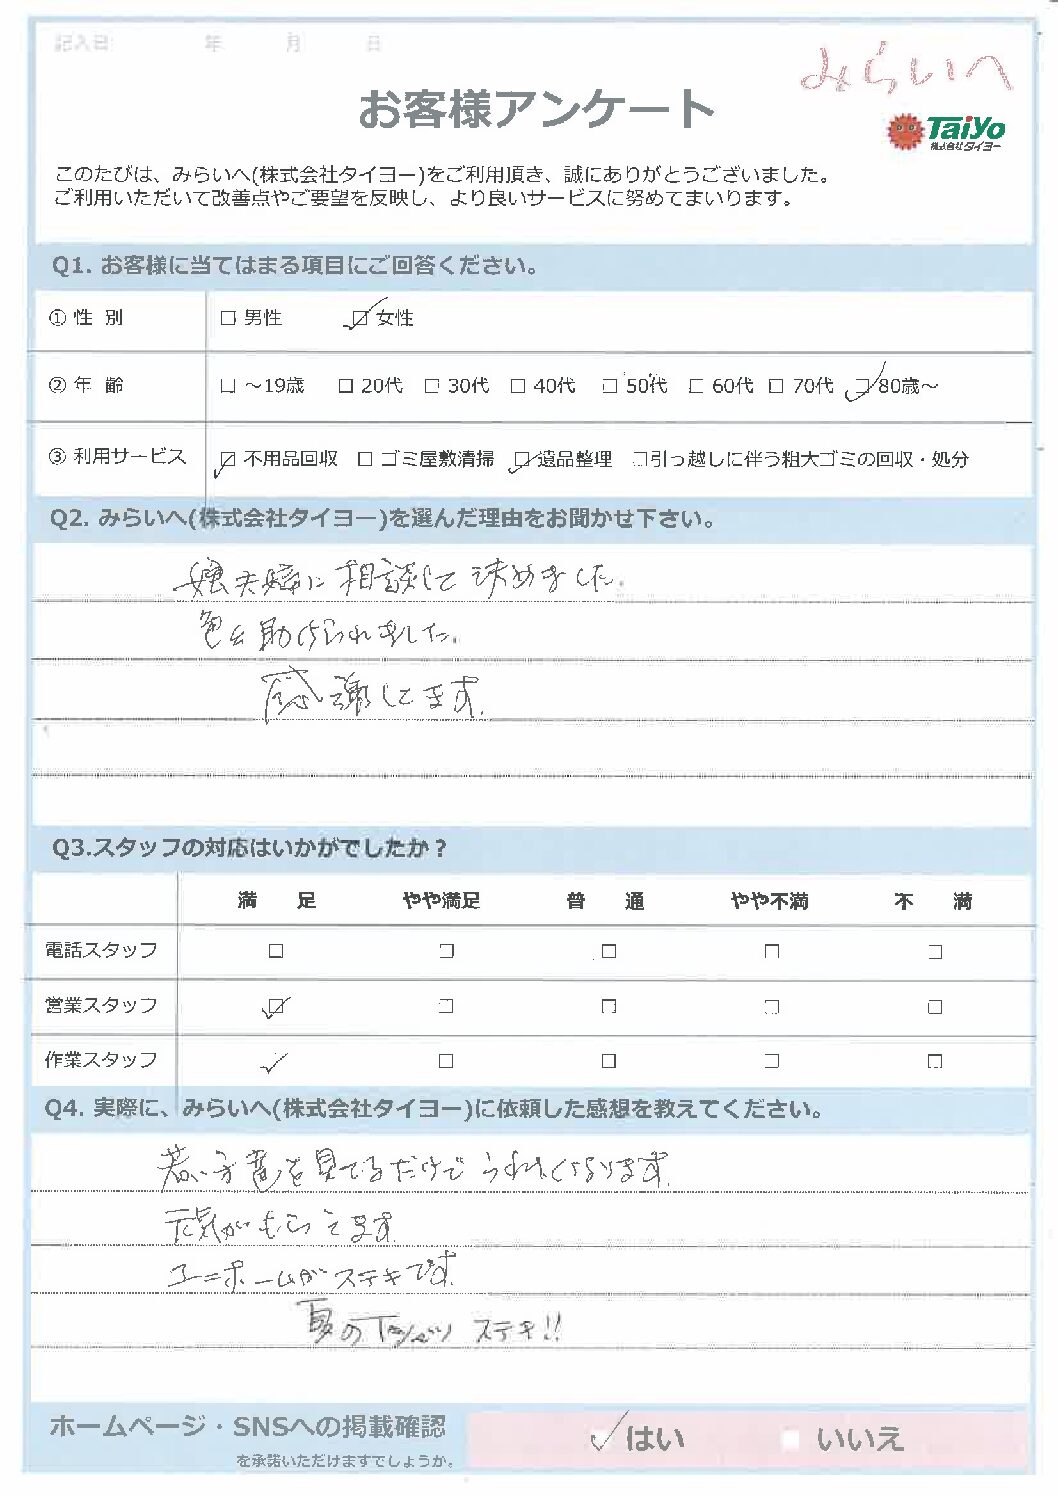 記入日 年 月 日
みらいへ
お客様アンケート
Taiyo
株式会社タイヨー
このたびは、みらいへ(株式会社タイヨー)をご利用頂き、誠にありがとうございました。
ご利用いただいて改善点やご要望を反映し、より良いサービスに努めてまいります。
Q1. お客様に当てはまる項目にご回答ください。
① 性 別 □ 男性 ☑ 女性
② 年 齢 □ ～19歳 □ 20代 □ 30代 □ 40代 □ 50代 □ 60代 □ 70代 ☑ 80歳～
③ 利用サービス ☑ 不用品回収 □ ゴミ屋敷清掃 ☑ 遺品整理 □引っ越しに伴う粗大ゴミの回収・処分
Q2. みらいへ(株式会社タイヨー)を選んだ理由をお聞かせ下さい。
娘夫婦に相談して決めました。
色々助けられました。
感謝してます。
Q3.スタッフの対応はいかがでしたか？
満 足 やや満足 普 通 やや不満 不 満
電話スタッフ □ □ □ □ □
営業スタッフ ☑ □ □ □ □
作業スタッフ ✓ □ □ □ □
Q4. 実際に、みらいへ(株式会社タイヨー)に依頼した感想を教えてください。
若い子達を見てるだけでうれしくなります。
元気がもらえます。
ユニホームがステキです。
夏のTシャツ ステキ!!
ホームページ・SNSへの掲載確認
を承諾いただけますでしょうか。
✓ はい □ いいえ